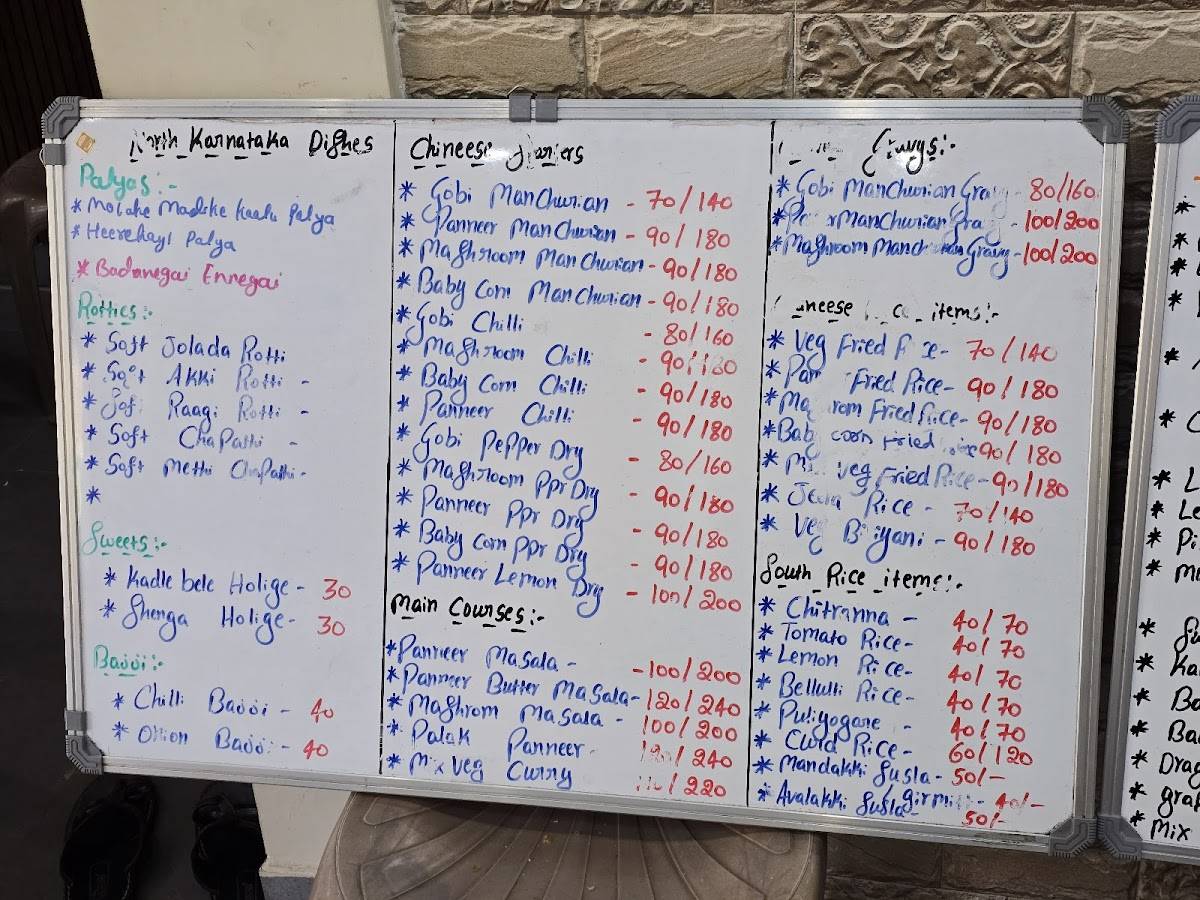 North Karnataka Dishes
Palyas:-
* Molake Madike kaalu Palya
* Heerekayi Palya
* Badanegai Ennegai
Rotties:-
* Soft Jolada Rotti
* Soft Akki Rotti -
* Soft Raagi Rotti -
* Soft Chapathi -
* Soft Methi Chapathi -
*
Sweets:-
* Kadle bele Holige - 30
* Shenga Holige - 30
Bajji:-
* Chilli Bajji - 40
* Onion Bajji - 40
Chineese Starters
* Gobi Manchurian - 70/140
* Panneer Manchurian - 90/180
* Mashroom Manchurian - 90/180
* Baby Corn Manchurian - 90/180
* Gobi Chilli - 80/160
* Mashroom Chilli - 90/180
* Baby Corn Chilli - 90/180
* Panneer Chilli - 90/180
* Gobi Pepper Dry - 80/160
* Mashroom PPr Dry - 90/180
* Panneer PPr Dry - 90/180
* Baby corn PPr Dry - 90/180
* Panneer Lemon Dry - 100/200
Main Courses:-
* Panneer Masala - - 100/200
* Panneer Butter Masala - 120/240
* Mashrom Masala - 100/200
* Palak Panneer - 120/240
* Mix Veg Curry /220
Gravys:-
* Gobi Manchurian Gravy - 80/160
* Manchurian - 100/200
* Mashroom Gravy - 100/200
items:-
* Veg Fried - 70/140
* Fried Rice - 90/180
* Fried Rice - 90/180
* corn Fried 90/180
* Veg Fried Rice - 90/180
* Jeera Rice - 70/140
* Veg Biriyani - 90/180
South Rice items:-
* Chitranna - 40/70
* Tomato Rice - 40/70
* Lemon Rice - 40/70
* Bellulli Rice - 40/70
* Puliyogare - 40/70
* Curd Rice - 60/120
* Mandakki Susla - 50/-
/girmit - 40/-
* Avalakki Susla - 50/-
L
Le
Pi
Ka
Ba
Ba
Drag
graf
Mix